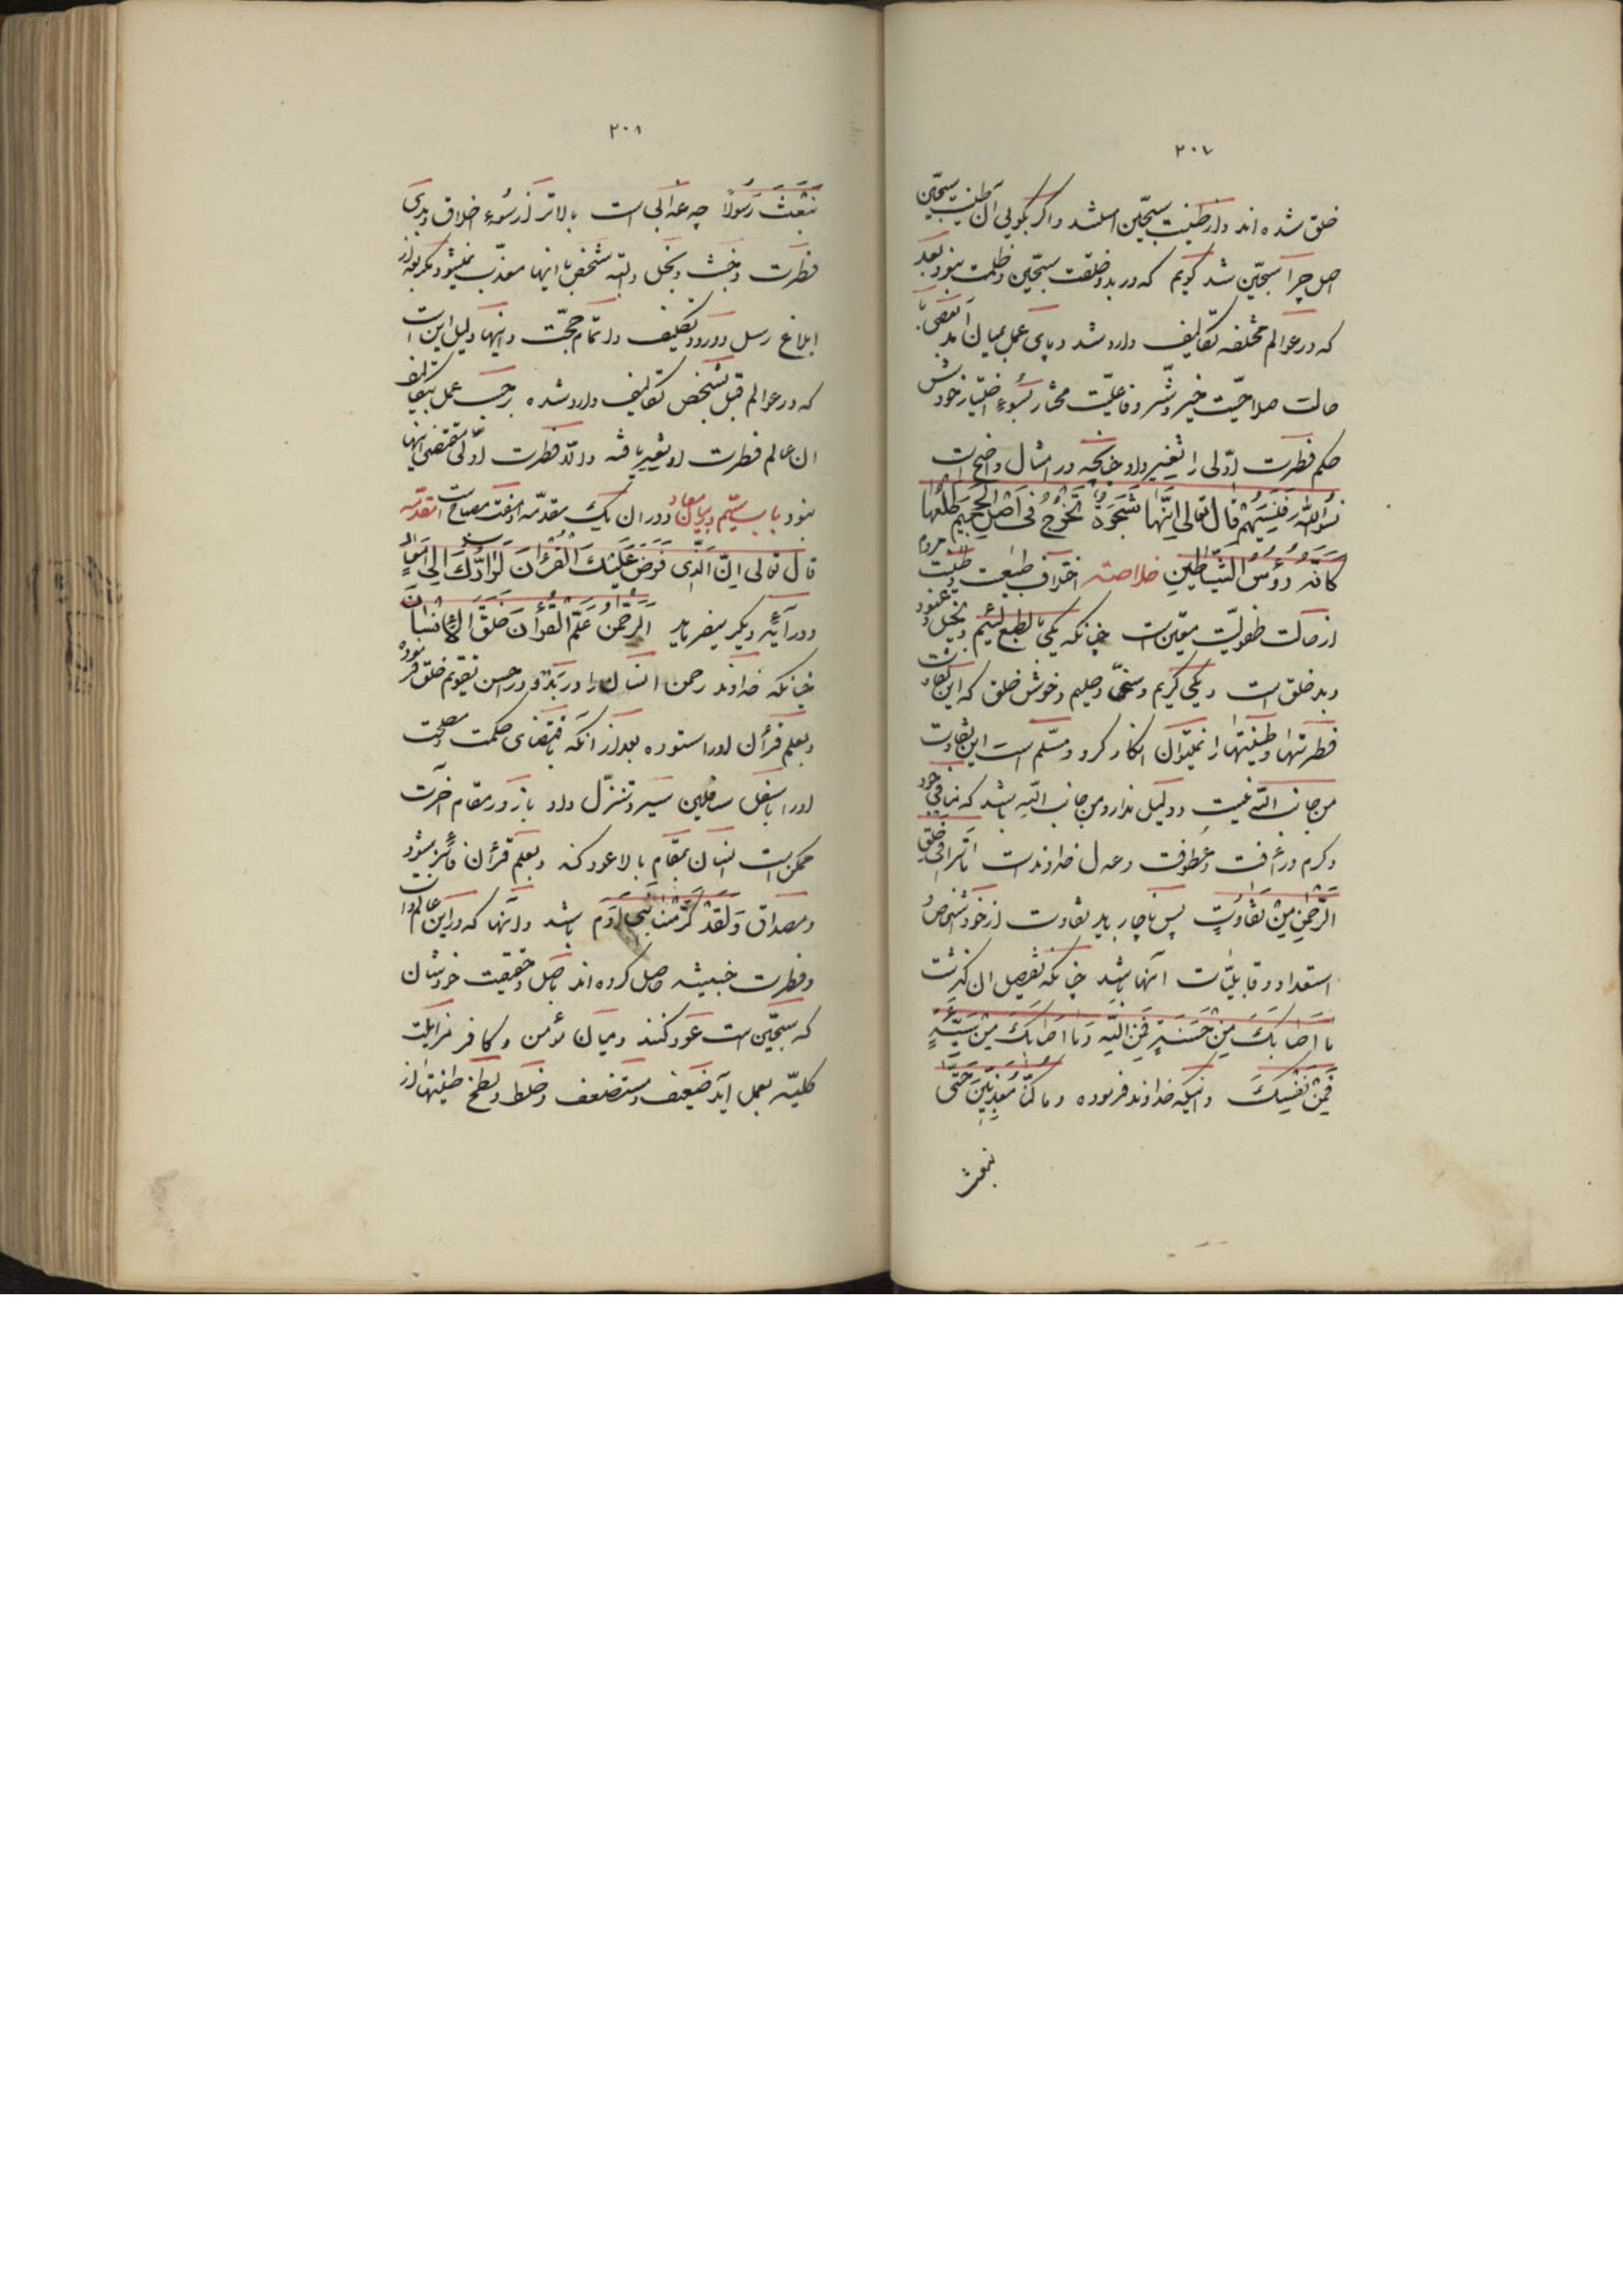 ۲۰۷
خلق شده اند و از طینت سجّین اصلشد و اگر بگوئی آن طینت سجّین
اصل چرا سجّین شد گویم که در بدو خلقت سجّین و ظلمت نبود بعد
که در عوالم مختلفه تکالیف وارد شد و پای عمل بمیان آمد
حالت صلاحیّت خیر و شّر و فاعلیّت مختار بسُوءِ اختیار خودش
حکم فطرت اوّلی را تغییر داد چنانچه در امثال واضح است
نسُوا اللّٰه فَنَسِیَهُم قال تعالی اِنَّها شَجَرَةٌ تَخْرُجُ فی اَصْلِ الجَحیمِ طَلْعُها
کَاَنَّهُ رُؤُسُ الشَّیاطینِ خلاصه اختلاف طبیعت و طینت مردم
از حالت طفولیّت معیّن است چنانکه یکی بالطبع لئیم و بخیل و عنود
و بد خلق است و یکی کریم و سخّی و حلیم و خوش خلق که این تفاوت
فطرتها و طینتها را نمیتوان انکار کرد و مسّلم است این تفاوت
من جانب اللّه نیست و دلیل ندارد من جانب اللّه باشد که منافی جود
و کرم و رأفت و عُطوفت و عدل خداوند است ما تَرٰی فی خَلْقِ
الرَّحْمٰنِ مِنْ تَفاوُتٍ پس ناچار باید تفاوت از خود شخص و
استعداد و قابلیّات آنها باشد چنانکه تفصیل آن گذشت
ما اَصابَکَ مِنْ حَسَنَةٍ فَمِنَ اللّهِ وَ ما اَصابَکَ مِنْ سَیِّئَةٍ
فَمِنْ نَفْسِکَ و اینکه خداوند فرموده و ما کُنّا مُعَذِّبینَ حَتّی
نبعث
۲۰۸
نَبْعَثَ رَسُولاً چه عذابی است بالاتر از سُوء اخلاق و بدی
فطرت و خبث و بخل و البته شخص با اینها معذّب نمیشود مگر بعد از
ابلاغ رسل و ورود تکلیف و اتمام حجّت و اینها دلیل این است
که در عوالم قبل بشخص تکالیف وارد شده بر حسب عمل بتکالیف
آن عالم فطرت او تغییر یافته و الّا فطرت اوّلی مقتضی اینها
نبود باب سیّم در بیان معاد و در آن یک مقدّمه و هفت مصباح است مقدّمه
قال تعالی اِنَّ الَّذی فَرَضَ عَلَیْکَ القُرْاٰنَ لَرادُّکَ اِلی مَعادٍ
و در آیهٔ دیگر میفرماید اَلرَّحْمٰنُ عَلَّمَ الْقُرْاٰنَ خَلَقَ الْاِنْسانَ
چنانکه خداوند رحمن انسان را در بدو در احسن تقویم خلق فرموده
و بعلم قرآن او را ستوده بعد از آنکه بمقتضای حکمت و مصلحت
او را باسفل سافلین سیر و تنزّل داد باز در مقام آخرت
ممکن است انسان بمقام بالا عود کند و بعلم قرآن فائز بشود
و مصداق وَ لَقَدْ کَرَّمْنا بَنی اٰدَم باشد و آنها که در این عالم ذات
و فطرت خبیثه حاصل کرده اند باصل و حقیقت خودشان
که سجّین است عود کنند و میان مؤمن و کافر مزایلت
کلیّه بعمل آید ضعیف و مستضعف و خلط و لطخ طینتها از